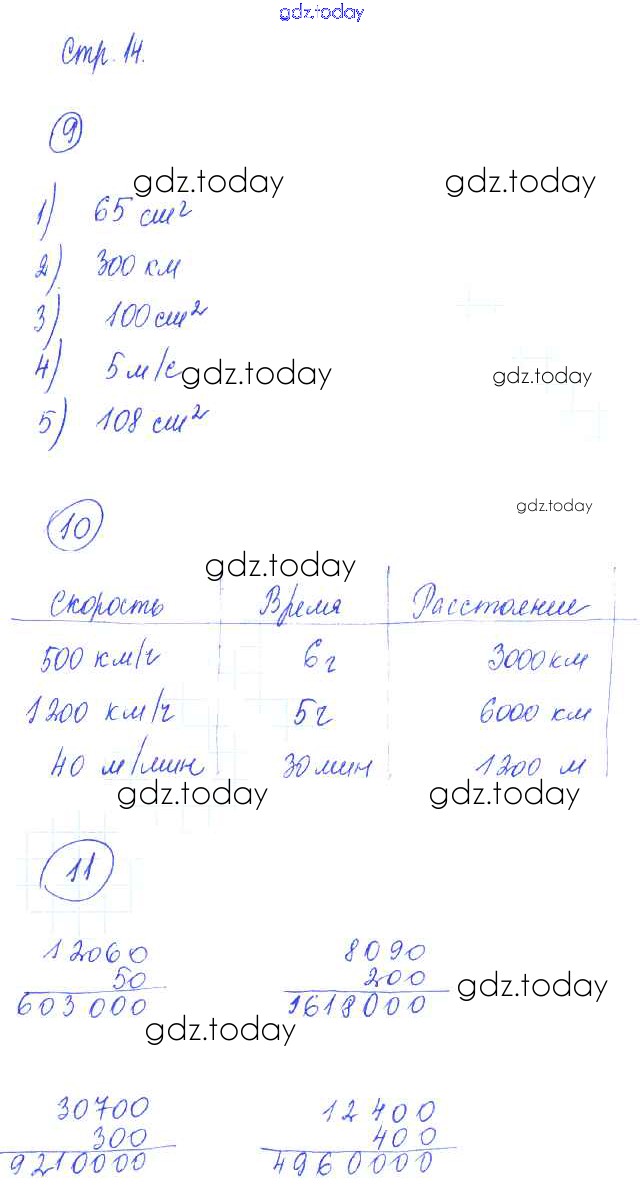 gdz.today
Стр. 14.
9
gdz.today gdz.today
1) 65 см²
2) 300 км
3) 100 см²
4) 5 м/с
gdz.today gdz.today
5) 108 см²
gdz.today
10
gdz.today
Скорость Время Расстояние
500 км/ч 6 ч 3000 км
1200 км/ч 5 ч 6000 км
40 м/мин 30 мин 1200 м
gdz.today gdz.today
11
12060 8090
50 200
gdz.today
603000 1618000
gdz.today
30700 12400
300 400
9210000 4960000